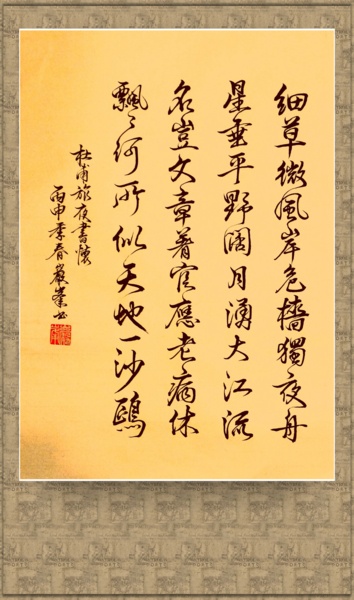 細草微風岸危檣獨夜舟
星垂平野闊月湧大江流
名豈文章著官應老病休
飄〻何所似天地一沙鷗
杜甫旅夜書懷
丙申季春巖峯书